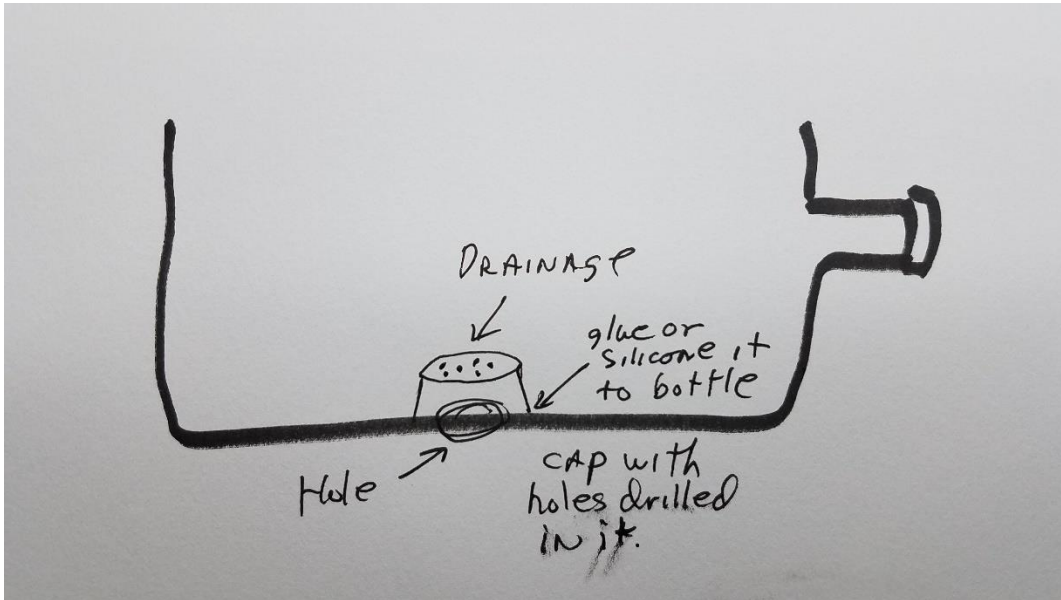 DRAINAGE
glue or
silicone it
to bottle
Hole
CAP with
holes drilled
in it.